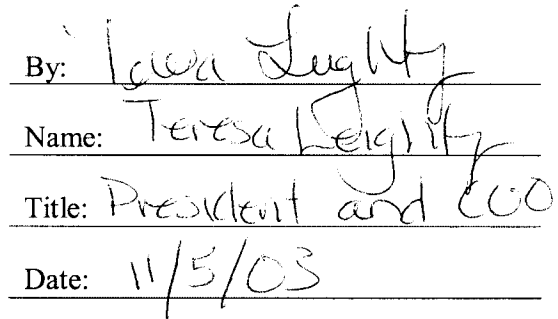 By: Teresa Leighty
Name: Teresa Leighty
Title: President and COO
Date: 11/5/03